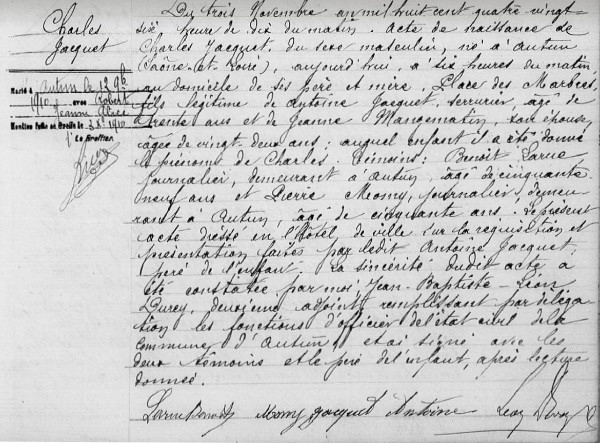 Charles
Jacquet
Marié à Autun le 12 9b
1910 avec Robert
Jeanne Alice
Mention faite au Greffe le
Le Greffier
Du trois Novembre an mil huit cent quatre vingt-
six heure de dix du matin. Acte de naissance de
Charles Jacquet, du sexe masculin, né à Autun
(Saône-et-Loire), aujourd'hui, à six heures du matin,
au domicile de ses père et mère, Place des Marbres,
fils légitime de Antoine Jacquet, serrurier, âgé de
trente ans et de Jeanne Mangematin, son épouse,
âgée de vingt-deux ans; auquel enfant il a été donné
le prénom de Charles. Témoins: Benoit Larue
journalier, demeurant à Autun, âgé de cinquante
neuf ans et Pierre Momy, journalier, demeu
rant à Autun, âgé de cinquante ans. Le présent
acte dressé en l'Hôtel de ville sur la requisition et
présentation faites par ledit Antoine Jacquet,
père de l'enfant. La sincérité dudit acte a
été constatée par moi Jean-Baptiste-Léon
Durey, deuxième adjoint remplissant par déléga
tion les fonctions d'officier de l'état civil de la
Commune d'Autun et ai signé avec les
deux témoins et le père de l'enfant, après lecture
donnée.
Larue Benoit Momy Jacquet Antoine Léon Durey